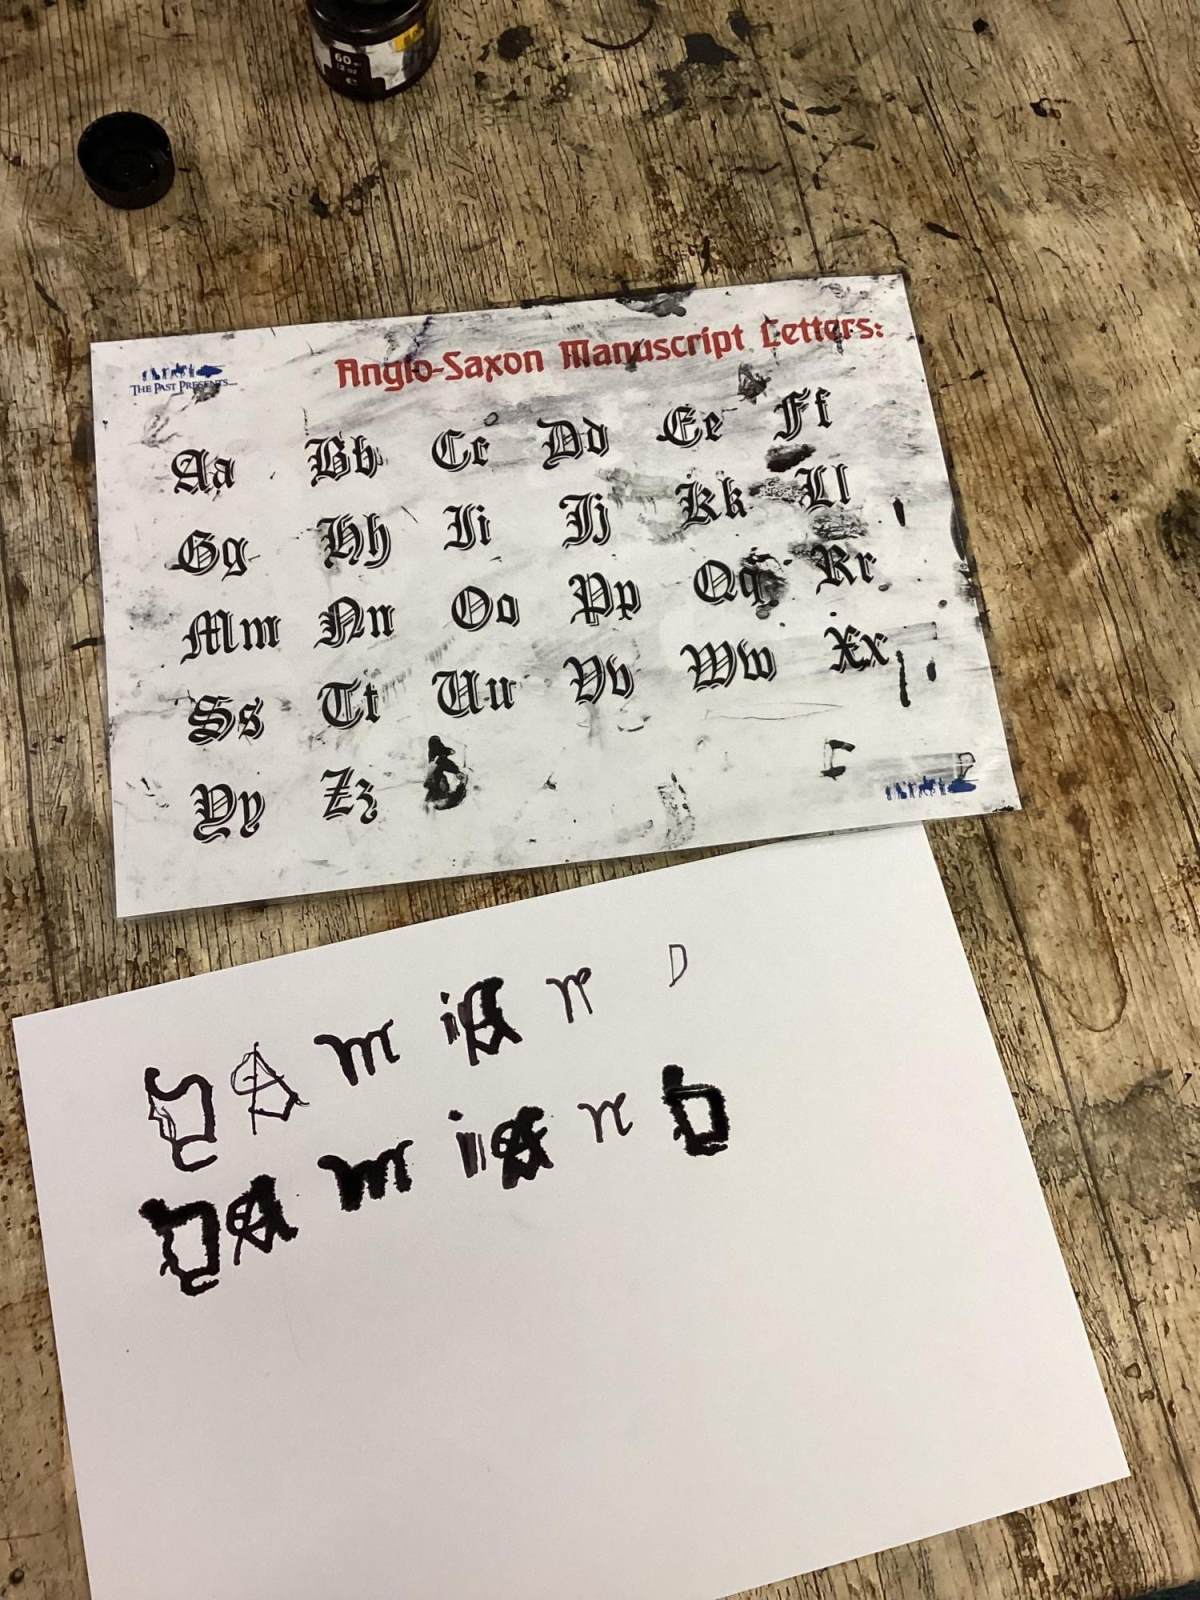 60 ml
2 oz
THE PAST PRESENTS...
Anglo-Saxon Manuscript Letters:
Aa Bb Cc Dd Ee Ff
Gg Hh Ii Jj Kk Ll
Mm Nn Oo Pp Qq Rr
Ss Tt Uu Vv Ww Xx
Yy Zz
D A m i A n D
D A m i A n D